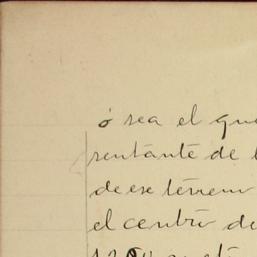 ó sea el que
sentante de l
de ese terren
el centro de